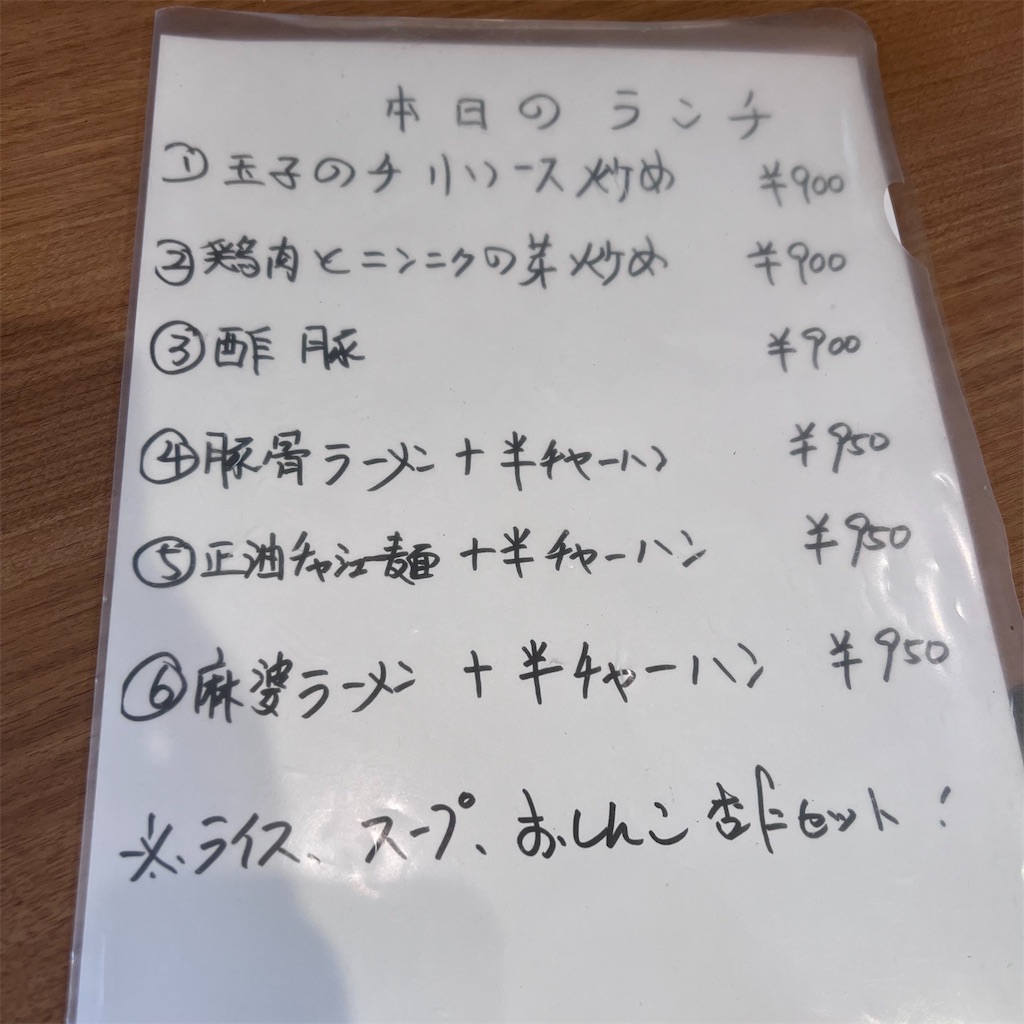 本日のランチ
① 玉子のチリソース炒め ¥900
② 鶏肉とニンニクの芽炒め ¥900
③ 酢豚 ¥900
④ 豚骨ラーメン+半チャーハン ¥950
⑤ 正油チャ江麺+半チャーハン ¥950
⑥ 麻婆ラーメン+半チャーハン ¥950
※ライス、スープ、おしんこ杏仁セット!